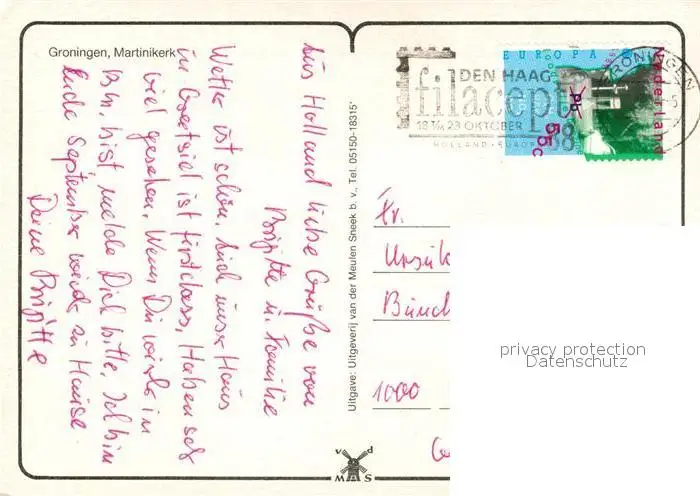 Groningen, Martinikerk
Aus Holland liebe Grüße von
Brigitte u. Familie
Wetter ist schön. Auch unser Haus
in Greetsiel ist firstclass. Haben sehr
viel gesehen. Wenn Du wieder in
Bln. bist melde Dich bitte. Ich bin
Ende September wieder zu Hause.
Deine Brigitte
Uitgave: Uitgeverij van der Meulen Sneek b. v., Tel. 05150-18315*
EUROPA
Nederland
55c
DEN HAAG
filacept
18 t/m 23 OKTOBER
88
HOLLAND
GRONINGEN
Fr.
Ursula
1000
privacy protection
Datenschutz